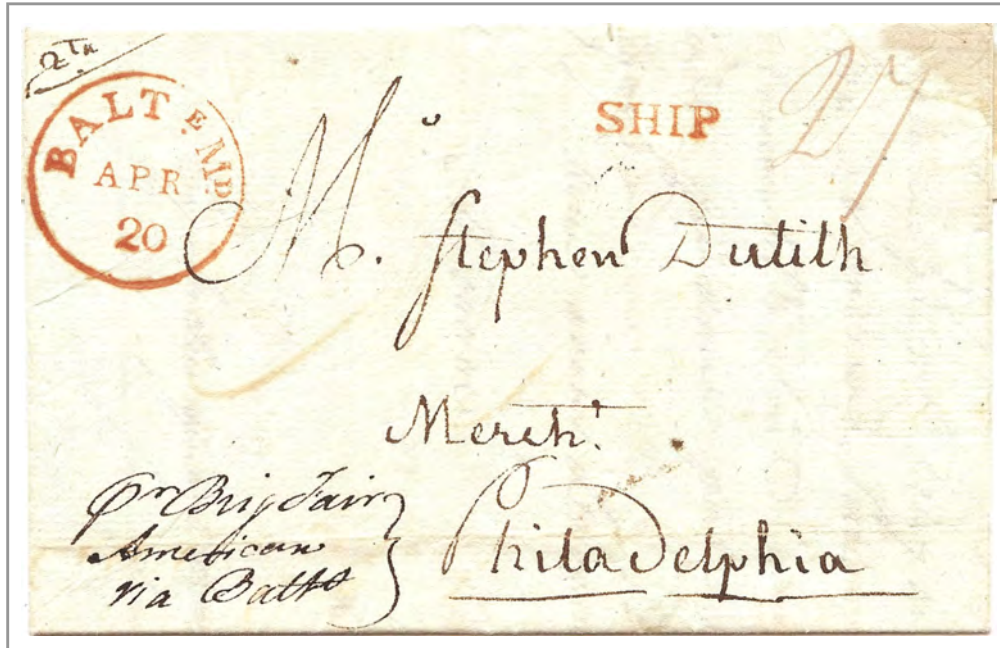 2Tn
BALTE. MD.
APR
20
SHIP
27
Mr. Stephen Dutilh
Mercht.
Philadelphia
pr Brig Fair
American
via Balto